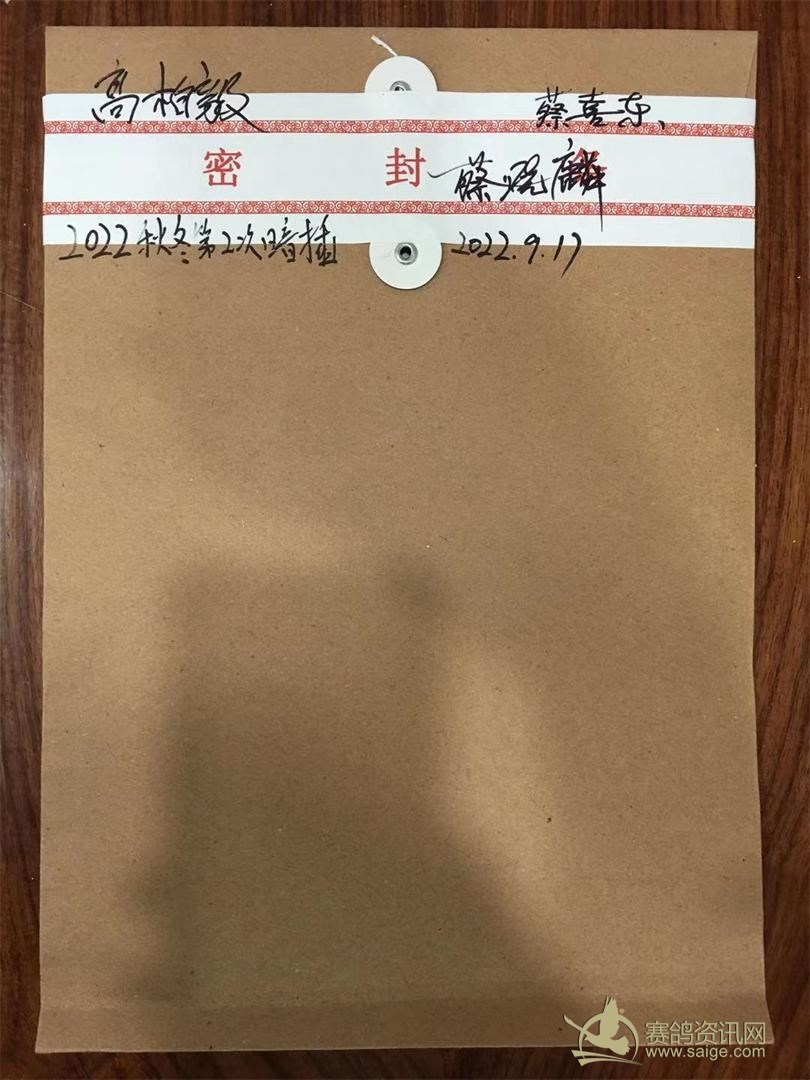 高柏毅 蔡喜东、
密 封
蔡 麟
2022秋冬第2次暗插 2022.9.17
赛鸽资讯网
www.saige.com